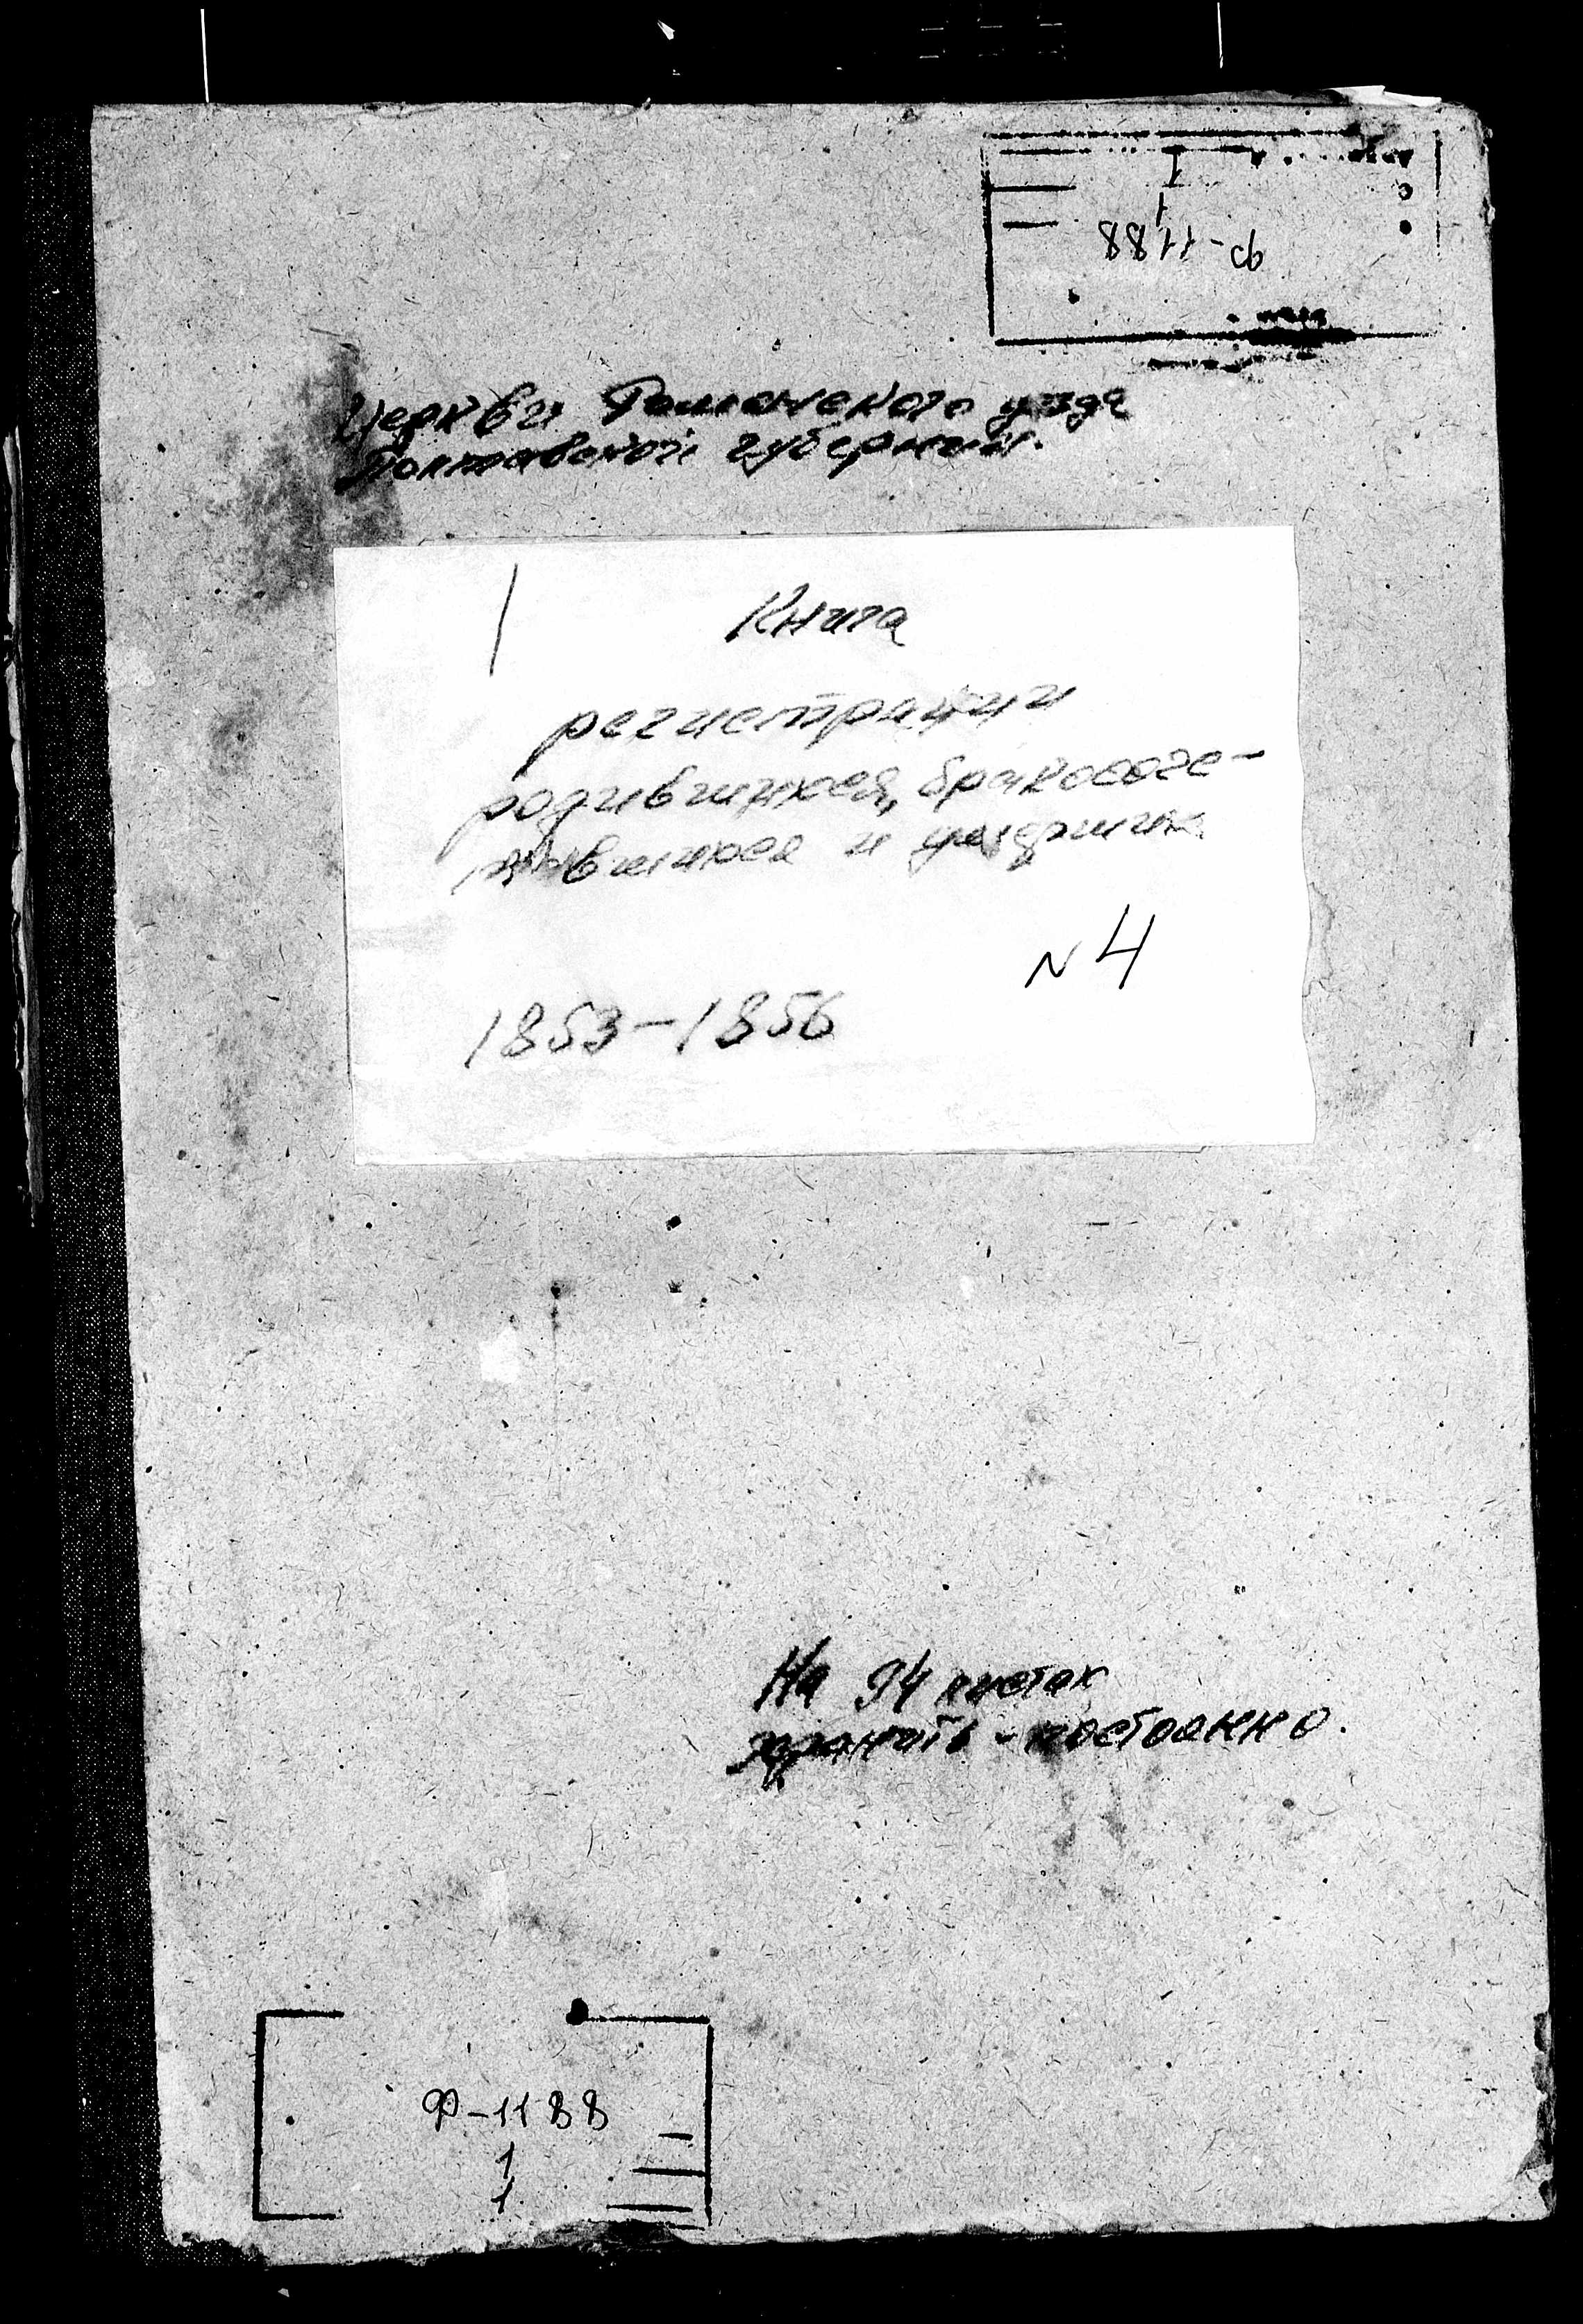 Ф-1188
1
1
Церкви Роменского уезда
Полтавской губернии.
Книга
регистрации
родившихся, бракосоче-
тавшихся и умерших
N 4
1853-1856
На 94 листах
хранить - постоянно.
Ф-1188
1
1